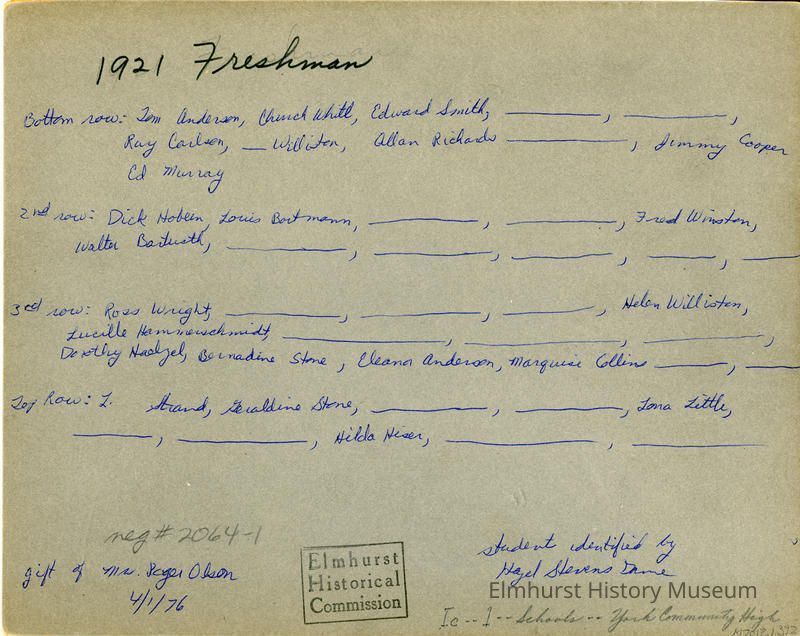 1921 Freshman
Bottom row: Tom Anderson, Chuck Whitt, Edward Smith, ______, ______,
Ray Carlson, __ Williston, Allan Richards ______, Jimmy Cooper
Ed Murray
2nd row: Dick Hobein, Louis Bortmann, ______, ______, Fred Winston,
Walter Bartusth, ______, ______, ______, ______, ______
3rd row: Ross Wright, ______, ______, ______, Helen Williston,
Lucille Hammerschmidt, ______, ______, ______,
Dorothy Haelzel, Bernadine Stone, Eleanor Anderson, Marquise Collins ______, ______
Top Row: L. Strand, Geraldine Stone, ______, ______, Lona Little,
______, ______, Hilda Hiser, ______, ______
neg # 2064-1
gift of Mrs. Roger Olson
4/1/76
Elmhurst
Historical
Commission
student identified by
Hazel Stevens
Elmhurst History Museum
Ic -- 1 -- Schools -- York Community High